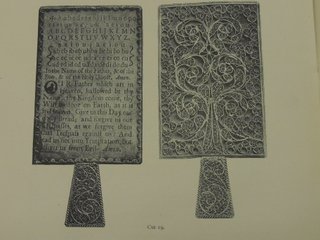 ABCDEFGHIJKLM
NOPQRSTUVWXYZ.
a e i o u a e i o u
ab eb ib ob ub ba be bi bo bu
In the Name of the Father, & of the
Son, & of the Holy Ghost. Amen.
OUR Father which art in
Heaven, hallowed be thy
Name; thy Kingdom come, thy
Will be done on Earth, as it is
in Heaven. Give us this Day our
Bread; and forgive us our
Trespasses, as we forgive them
that Trespass against us: And
Lead us not into Temptation, But
deliver us from Evil. Amen.
Cut 19.